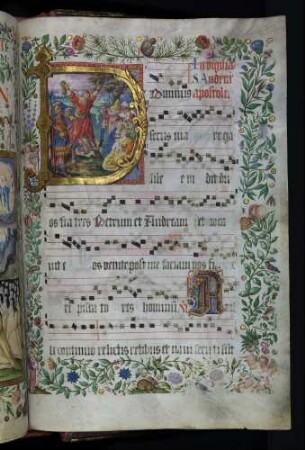 In vigilia
S. Andree
Dominus apostoli.
secus ma re ga
lile e m vidit du
os fratres Petrum et Andream et voca
vit e os venite post me faciam vos fi e
ri pisca to res hominum
N
At continuo relictis retibus et navi secuti sunt